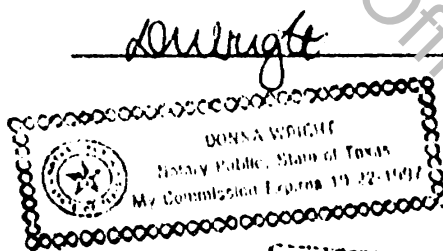 DWright
DONNA WRIGHT
Notary Public, State of Texas
My Commission Expires